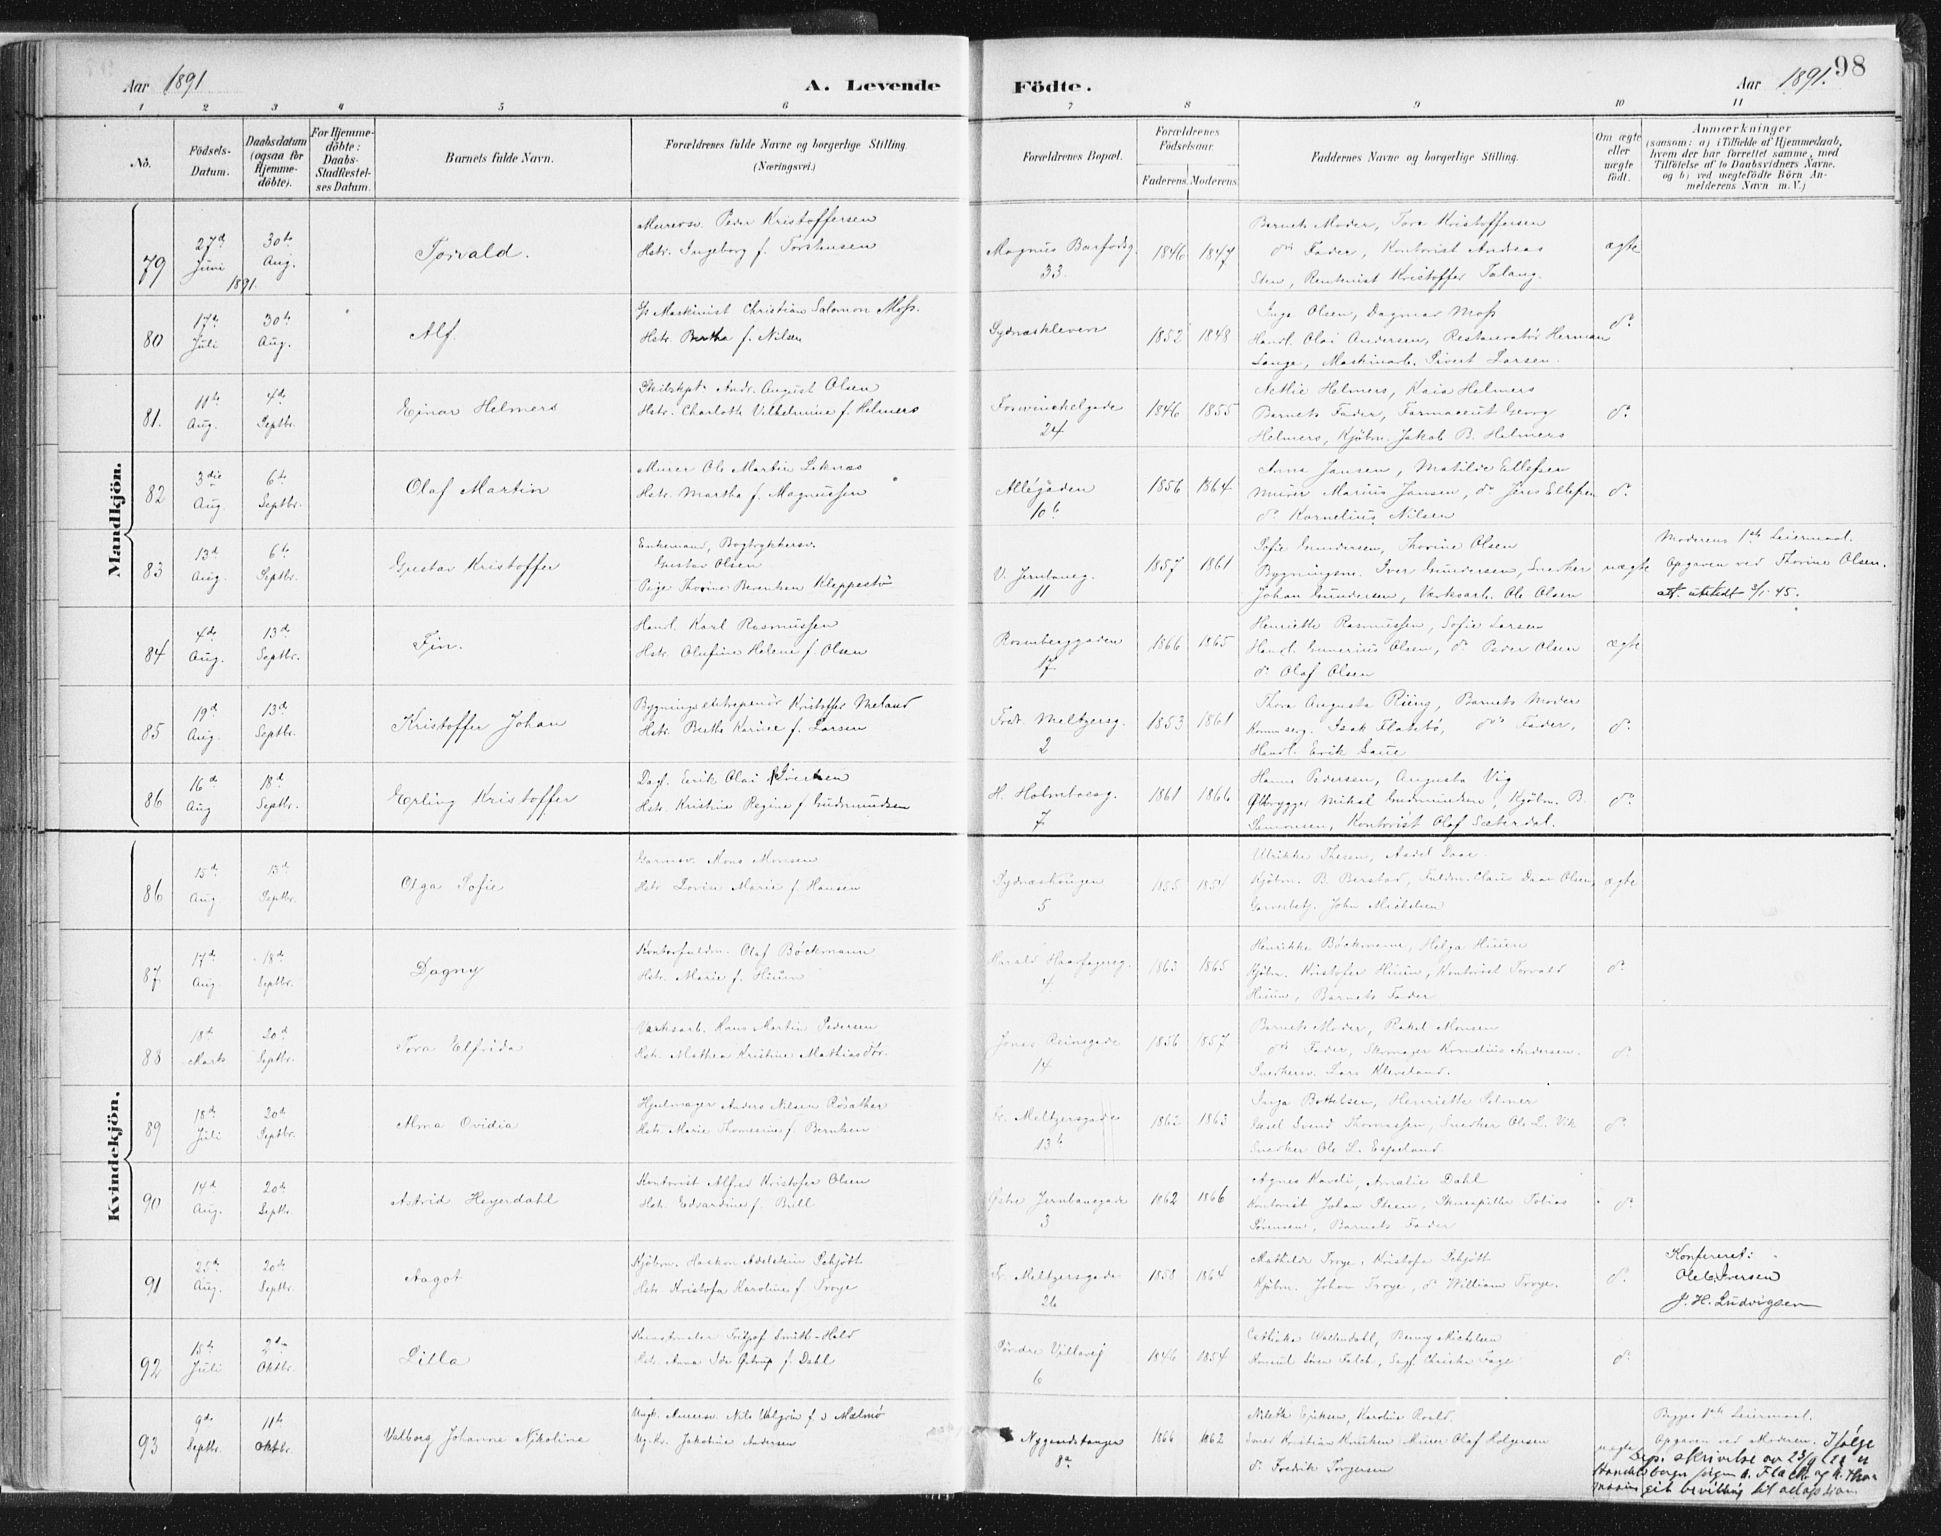 98
Aar 1891
A. Levende
Födte.
Aar 1891.
1 2 3 4 5 6 7 8 9 10 11
No.
Födsels-Datum.
Daabsdatum (ogsaa for Hjemmedöbte).
For Hjemmedöbte: Daabs-Stadfæstelses Datum.
Barnets fulde Navn.
Forældrenes fulde Navne og borgerlige Stilling.
(Næringsvei.)
Forældrenes Bopæl.
Forældrenes Födselsaar.
Faderens Moderens
Faddernes Navne og borgerlige Stilling.
Om ægte eller uægte födt.
Anmærkninger
(saasom: a) i Tilfælde af Hjemmedaab,
hvem der har forrettet samme, med
Tilföielse af to Daabsvidners Navne,
og b) ved uægtefödte Börn Anmelderens Navn m. V.)
Mandkjön.
79 27d Juni 1891 30te Aug. Torvald.
Peder Kristoffersen
Hstr. Ingeborg f. Torstensen
Magnus Barfodsg. 33. 1846 1847
Barnets Moder, Tora Kristoffersen
ds Fader, Kontorist Andreas
Sten, Rentenist Kristoffer Talang.
ægte
80 17de Juli 30te Aug. Alf.
Maskinist Christian Salomon Moss.
Hstr. Bertha f. Nilsen
Sydnæskleven 1852 1848
Inga Olsen, Dagmar Moss
Handl. Olai Andersen, Restauratör Herman
Lange, Maskinarb. Sivert Larsen.
do
81. 11te Aug. 4de Septbr. Ejnar Helmers
Skibskpt. Andr. August Olsen
Hstr. Charlotte Vilhelmine f. Helmers
Foswinckelgade 24 1846 1855
Nethie Helmers, Kaia Helmers
Barnets Fader, Farmaceut Georg
Helmers, Kjöbm. Jakob B. Helmers
do
82 3die Aug. 6te Septbr. Olaf Martin
Murer Ole Martin Leknæs
Hstr. Martha f. Magnussen
Allégaden 10b 1856 1864
Anna Jansen, Matilde Ellefsen
Murer Marius Jansen, do Jens Ellefsen
do Kornelius Nilsen
do
83 13d Aug. 6te Septbr. Gustav Kristoffer
Enkemand, Bogtrykkersv.
Gustav Olsen
Pige Thorine Berentsen Kleppestö
V. Jernbaneg. 11 1857 1861
Sofie Gundersen, Thorine Olsen
Bygningssn. Iver Gundersen, Snedker
Johan Gundersen, Værksarb. Ole Olsen
uægte
Moderens 1ste Leiermaal.
Opgaven ved Thorine Olsen.
att. utstedt 2/1-45.
84 4de Aug. 13d Septbr. Finn.
Handl. Karl Rasmussen
Hstr. Olufine Helene f. Olsen
Rosenberggaden 17 1866 1865
Henriette Rasmussen, Sofie Larsen
Handl. Gunerius Olsen, do Peder Olsen
do Olaf Olsen
ægte
85 19d Aug. 13d Septbr. Kristoffer Johan
Bygningsentrepenör Kristoffer Meland
Hstr. Berthe Karine f. Larsen
Fredr. Meltzersg. 2 1853 1861
Thora Augusta Riing, Barnets Moder
Isak Flatebö, ds Fader,
Handl. Erik Saue
do
86 16d Aug 18d Septbr. Erling Kristoffer
Dagl. Eerik Olai Iversen
Hstr. Kristine Regine f. Gudmundsen
H. Holmboesg. 7 1861 1866
Hanna Pedersen, Augusta Vig
Ölbrygger Mikal Gudmundsen, Kjöbm. B.
Samonsen, Kontorist Olaf Sæterdal.
do
Kvindekjön.
86 15de Aug 13d Septbr. Olga Sofie
Garversv. Mons Monsen
Hstr Lovise Marie f. Hansen
Sydnæskougen 5 1855 1854
Ulrikke Thesen, Andel Daae
Kjöbm. B. Berstad, Fuldm. Claus Daae Olsen,
Garverbetj. John Mickelsen
ægte
87 17d Aug. 18d Septbr. Dagny
Kontorfuldm. Olaf Böckmann
Hstr. Marie f. Hiuun
Harald Haarfagersg. 4 1863 1865
Henrikke Böckmann, Helga Hiuun
Kjöbm. Kristofer Hiuun, Kontorist Torvald
Hiuun, Barnets Fader
do
88 18de Marts 20d Septbr. Tora Elfrida
Værksarb. Hans Martin Pedersen
Hstr. Mathea Kristine Mathiasdtr.
Jonas Reinsgade 14 1856 1857
Barnets Moder, Rakel Monsen
ds Fader, Skomager Kornelius Andersen.
Snedkersv. Lars Kleveland.
do
89 18de Juli 20d Septbr. Alma Ovidia
Hjulmager Anders Nilsen Rösather
Hstr. Marie Thomasine f. Berntsen
Fr. Meltzersgade 13b 1862 1863
Inga Bottelsen, Henriette Solner
Svend Thomassen, Snedker Ole L. Vik
Snedker Ole L. Espeland.
do
90 14d Aug. 20de Septbr. Astrid Heyerdahl
Kontorist Alfred Kristofer Olsen
Hstr. Edvardine f. Brill
Östre Jernbanegade 3 1862 1866
Agnes Kavli, Amalie Dahl
Kontorist Johan Steen, Skuespiller Tobias
Sörensen, Barnets Fader
do
91 25de Aug. 20de Septbr. Aagot
Kjöbm. Haakon Adelstein Schjött
Hstr. Kristofa Karoline f. Troye
Fr. Meltzersgade 26 1858 1864
Mathilde Troye, Kristofa Schjött
Kjöbm. Johan Troye, do William Troye.
do
Konfereret:
Ole C. Iversen
J. H. Ludvigsen
92 15de Juli 2den Oktbr. Lilla
Kunstmaler Fritjof Smith-Hald
Hstr. Anna Ida Gjerup f. Dahl
Söndre Villavej 6 1846 1854
Cathinka Wallendahl, Benny Michelsen
Konsul Sören Falch, Sagf. Christian Fage
do
93 9de Septbr. 11te Oktbr. Valborg Johanne Nikoline
Ungk. Murersv. Nils Valgrin f. i Malmö
Ug. Kv. Jakobine Andersen
Nygaardstangen 8a 1866 1862
Nilette Eriksen, Karoline Roald.
Smed Kristian Knutsen, Murer Olaf Holgersen
do Fredrik Torgersen
uægte
Begges 1ste Leiermaal.
Opgaven ved Moderen. Ifölge
Dep. skrivelse av
git bevilling til adopsion